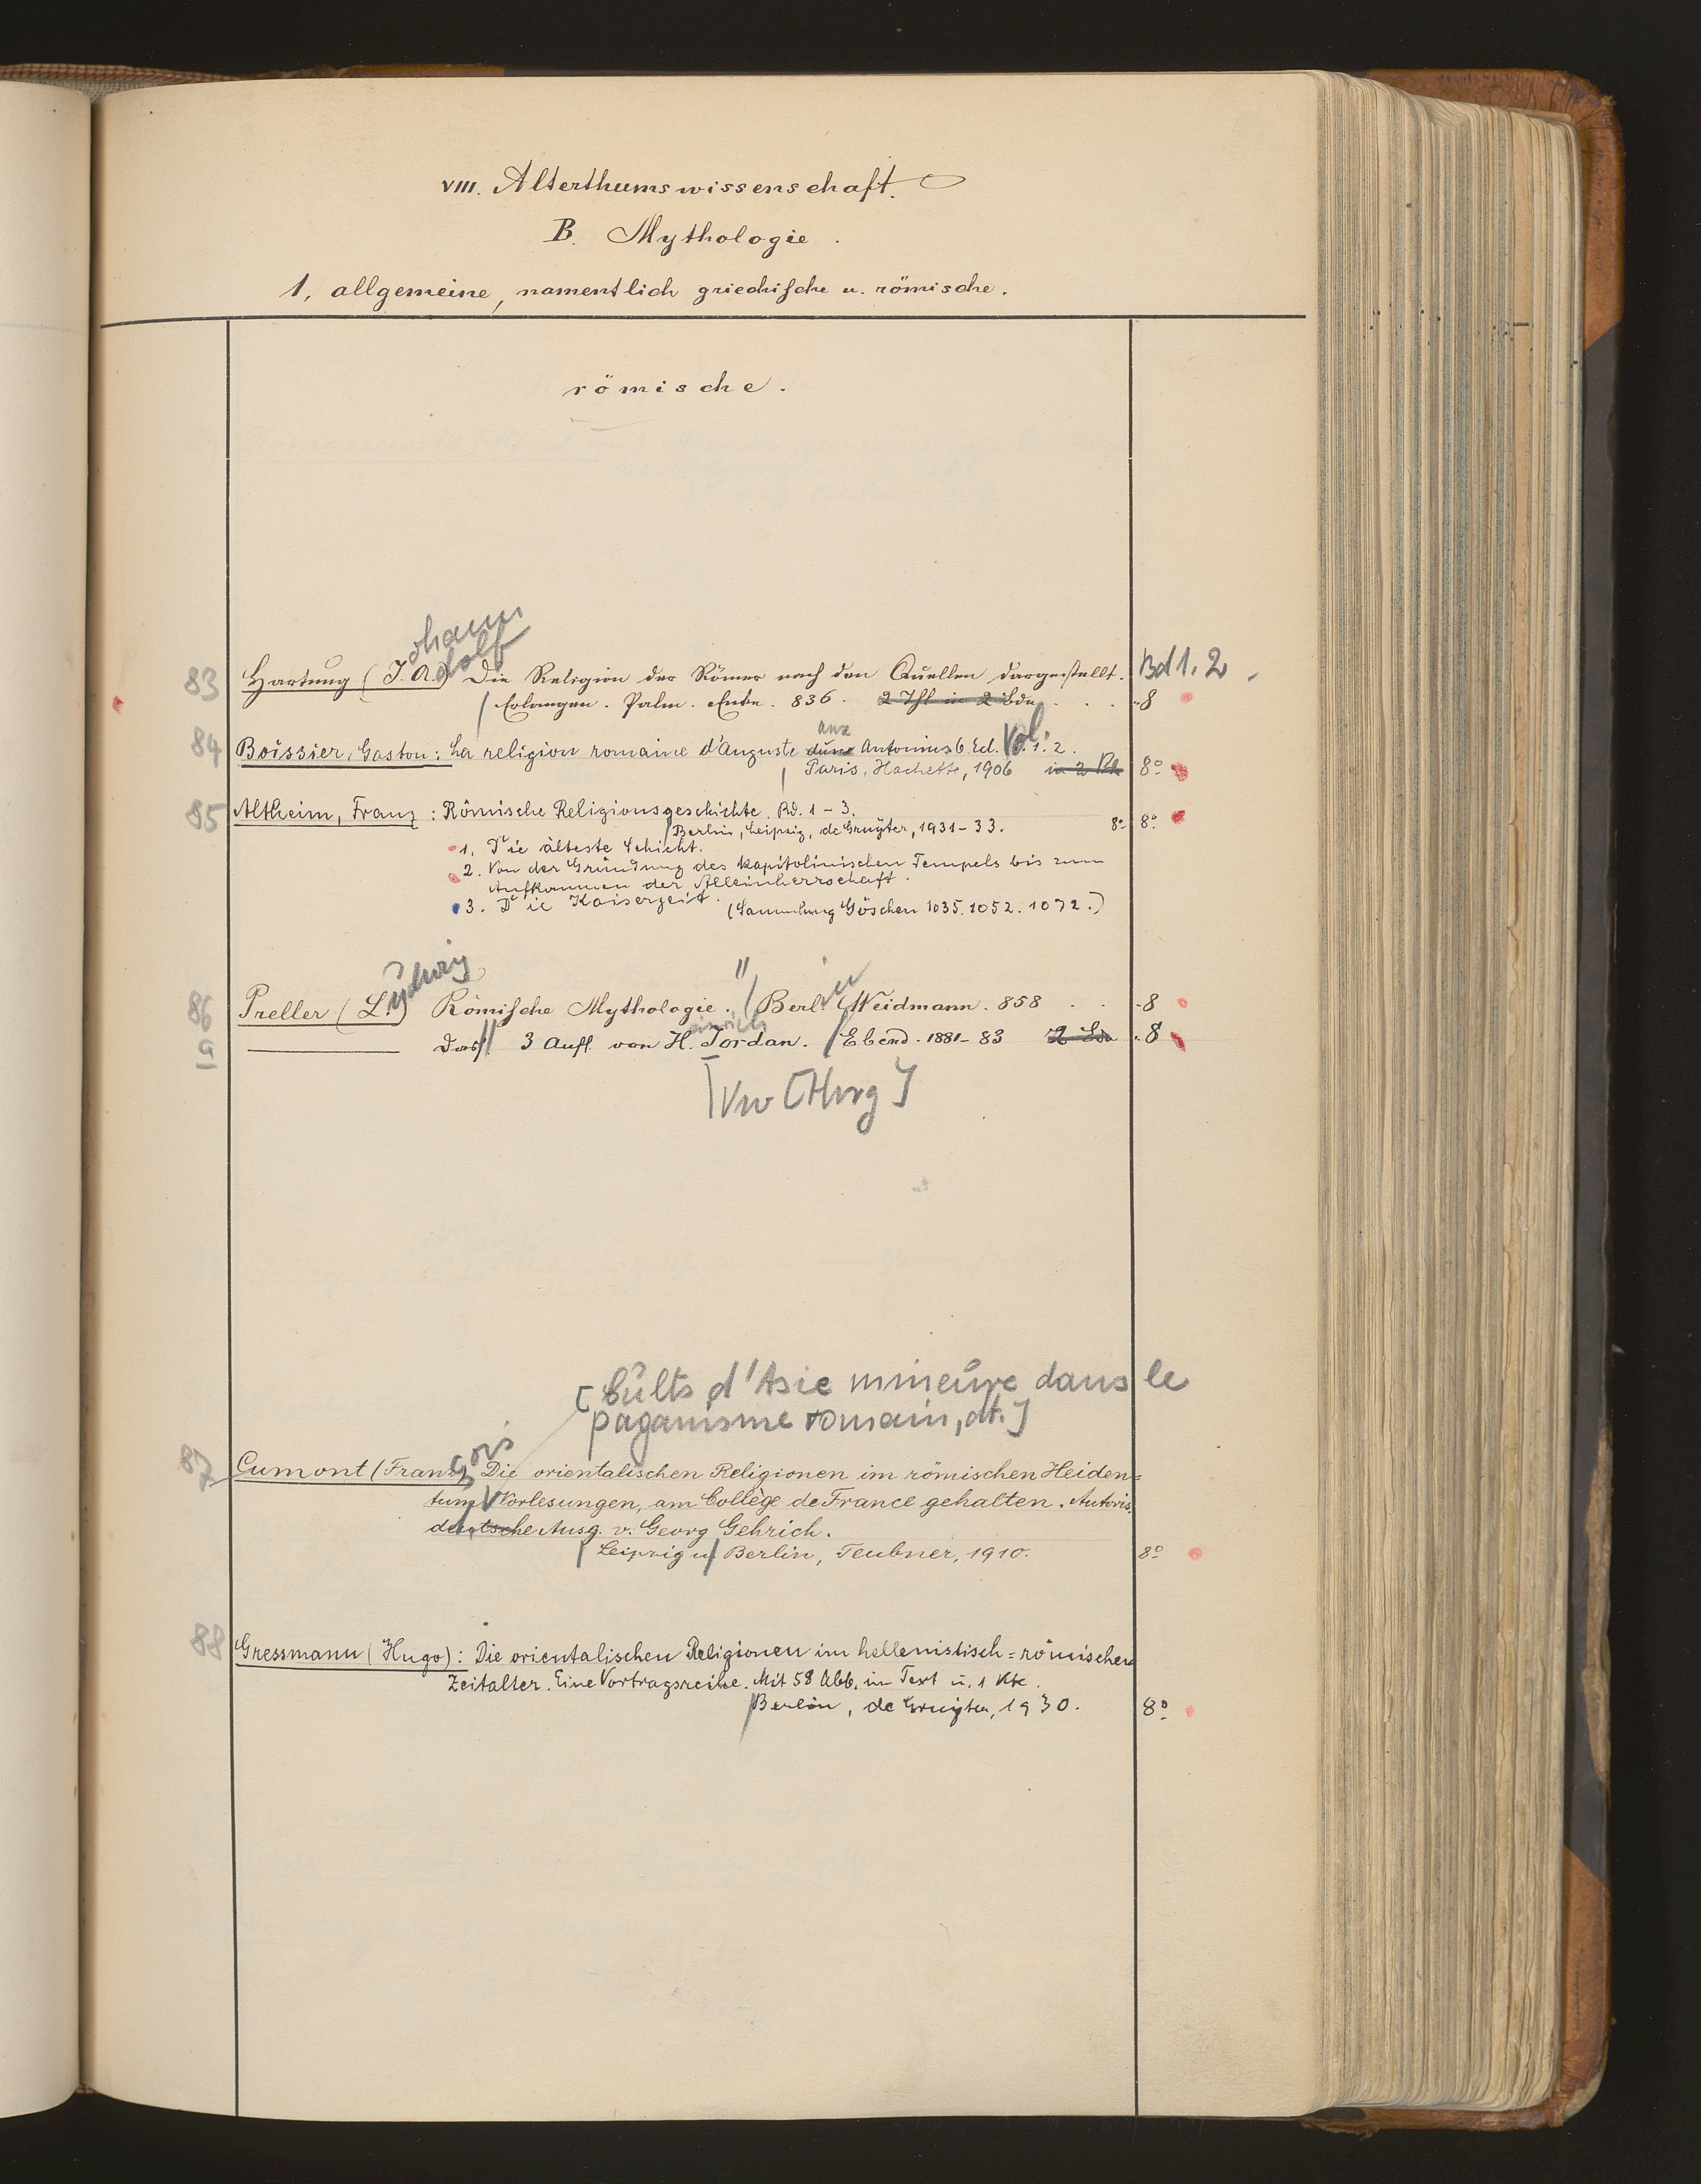 VIII. Alterthumswissenschaft.
B. Mythologie.
1, allgemeine, namentlich griechische u. römische.
römische.
ohann
dolf
83 Hartung (J. A.) Die Religion der Römer nach den Quellen dargestellt. Bd 1. 2
Erlangen. Palm. Enke. 836. 2 Thl in 2 Bdn . . . 8
aux
84 Boissier, Gaston: La religion romaine d'Auguste Antonins 6. Ed. Vol. 1. 2.
Paris, Hachette, 1906 in 2 Bd 8°
85 Altheim, Franz: Römische Religionsgeschichte. Bd. 1-3.
Berlin, Leipzig, de Gruyter, 1931-33. 8° 8°
1. Die älteste Schicht.
2. Von der Gründung des kapitolinischen Tempels bis zum
Aufkommen der Alleinherrschaft.
3. Die Kaiserzeit. (Sammlung Göschen 1035. 1052. 1072.)
udwig
86 Preller (L.) Römische Mythologie. Berlin Weidmann. 858 . . 8
einrich
a Dass 3 Aufl. von H. Jordan. Ebend. 1881-83 2 Bde 8
[Vw [Hrsg]
[Cults d'Asie mineure dans le
paganisme romain, dt.]
87 Cumont (Franz) Die orientalischen Religionen im römischen Heiden=
tum Vorlesungen, am Collège de France gehalten. Autoris.
deutsche Ausg. v. Georg Gehrich.
Leipzig u Berlin, Teubner, 1910. 8°
88 Gressmann (Hugo): Die orientalischen Religionen im hellenistisch=römischen
Zeitalter. Eine Vortragsreihe. Mit 58 Abb. im Text u. 1 Kte.
Berlin, de Gruyter, 1930. 8°